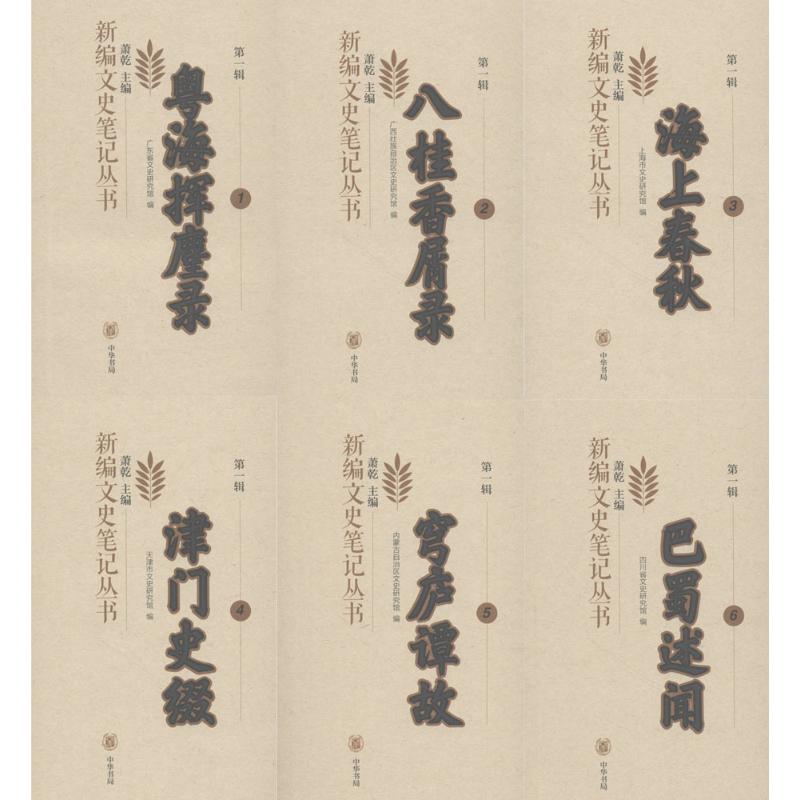 新编文史笔记丛书
萧乾 主编
第一辑
粤海挥麈录
广东省文史研究馆 编
1
中华书局
新编文史笔记丛书
萧乾 主编
第一辑
八桂香屑录
广西壮族自治区文史研究馆 编
2
中华书局
新编文史笔记丛书
萧乾 主编
第一辑
海上春秋
上海市文史研究馆 编
3
中华书局
新编文史笔记丛书
萧乾 主编
第一辑
津门史缀
天津市文史研究馆 编
4
中华书局
新编文史笔记丛书
萧乾 主编
第一辑
穹庐谭故
内蒙古自治区文史研究馆 编
5
中华书局
新编文史笔记丛书
萧乾 主编
第一辑
巴蜀述闻
四川省文史研究馆 编
6
中华书局